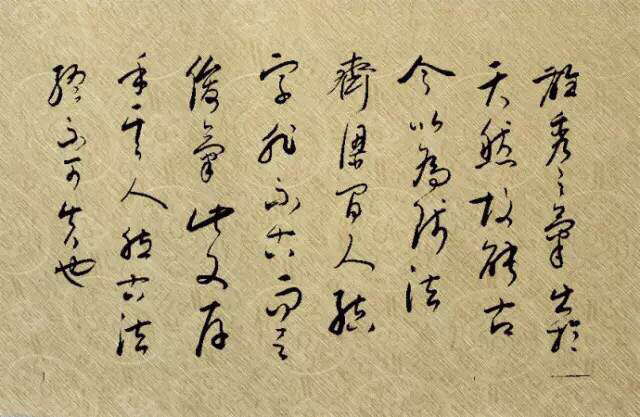 雄秀之氣出於
天然故能古
今以為師法
齊梁間人結
字非不古而乏
俊氣此又存
乎其人然古法
終不可失也